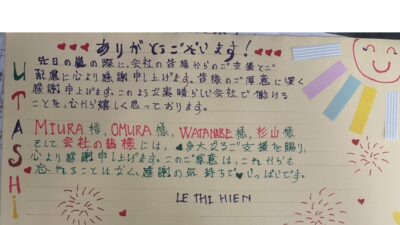 ありがとうございます!
UTASHi
先日の嵐の際に、会社の皆様からのご支援とご
配慮に心より感謝申し上げます。皆様のご厚意に深く
感謝申し上げます。このような素晴らしい会社で働ける
ことを、心から嬉しく思っております。
MIURA 様, OMURA 様, WATANABE 様, 杉山 様
そして会社の皆様には、多大なるご支援を賜り、
心より感謝申し上げます。このご厚意は、これからも
忘れることはなく、感謝の気持ちでいっぱいです。
LE THI HIEN